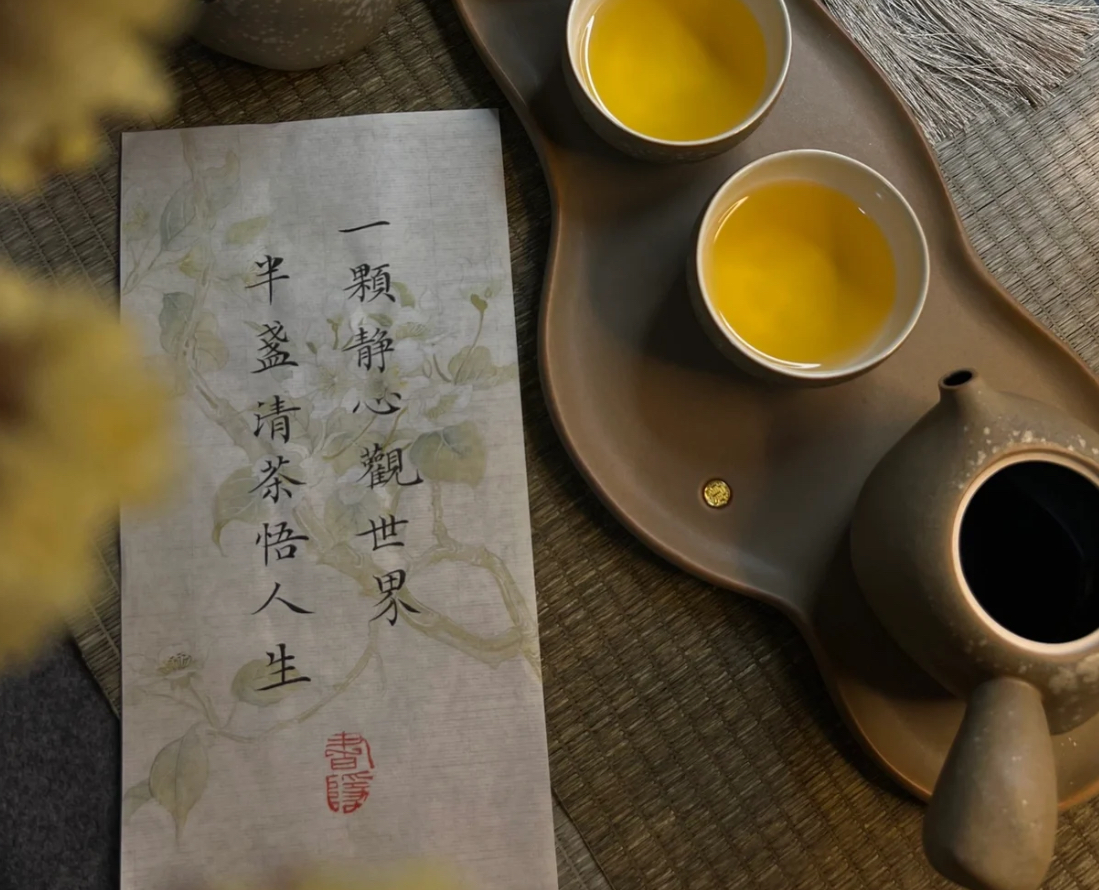 一顆静心觀世界
半盞清茶悟人生
書隱